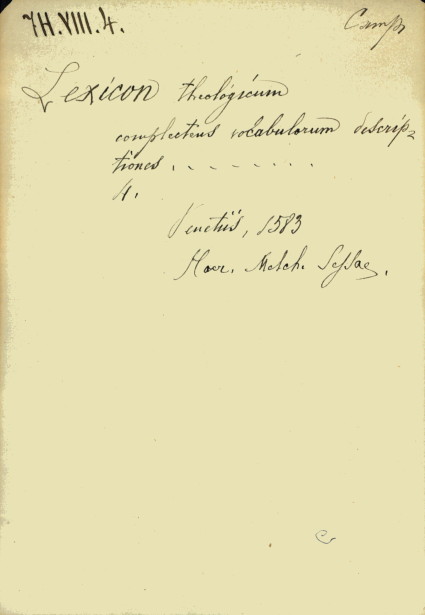 7H.VIII.4.
Camp
Lexicon theologicum
complectens vocabulorum descrip=
tiones . . . . . . . .
4.
Venetiis, 1583
Haer. Melch. Sessae.